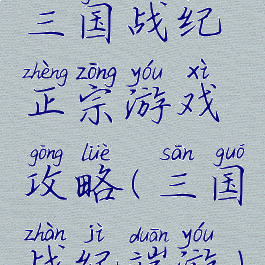 三国战纪
zhèng zōng yóu xì
正宗游戏
gōng lüè sān guó
攻略(三国
zhàn jì duān yóu
战纪端游)